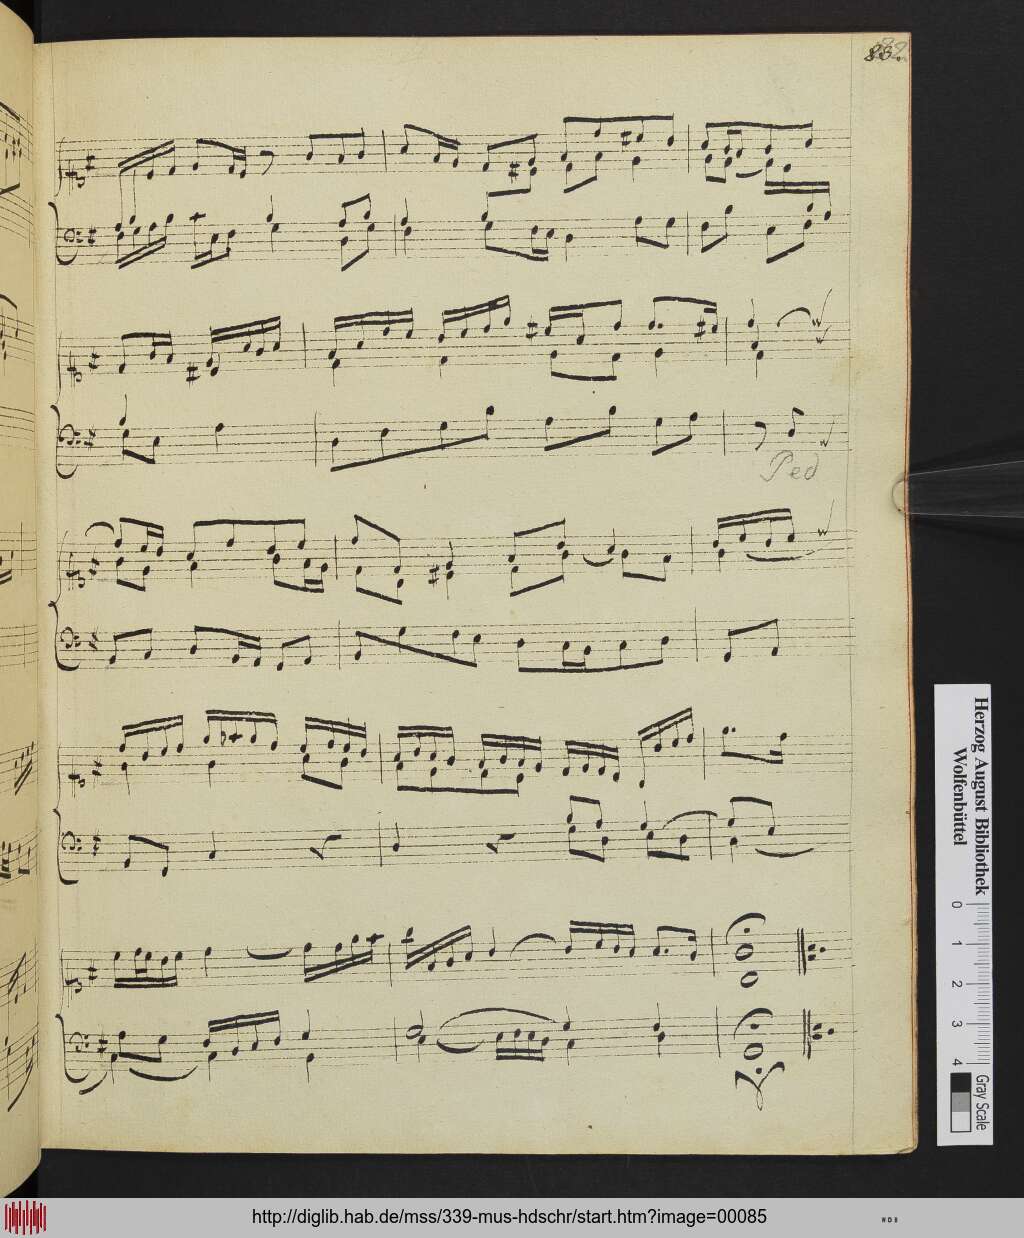 83.
Ped
Herzog August Bibliothek
Wolfenbüttel
0 1 2 3 4
Gray Scale
http://diglib.hab.de/mss/339-mus-hdschr/start.htm?image=00085